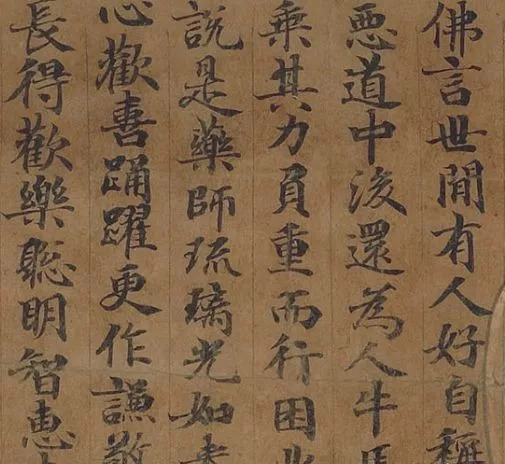 佛言世間有人好自稱
惡道中後還為人牛馬
乘其力負重而行困
說是藥師琉璃光如來
心歡喜踊躍更作謙敬
長得歡樂聰明智惠